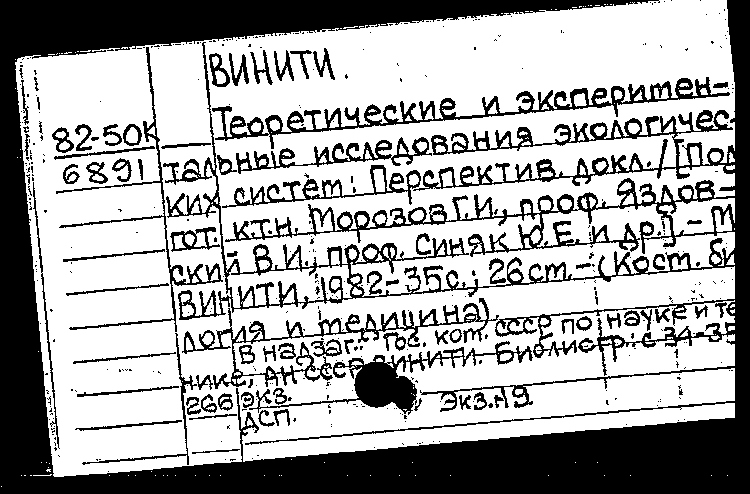 ВИНИТИ.
82-50К Теоретические и эксперимен-
6891 тальные исследования экологичес-
ких систем: Перспектив. докл. / [Под
гот. к.т.н. Морозов Г.И., проф. Яздов-
ский В.И., проф. Синяк Ю.Е. и др.]. - М
ВИНИТИ, 1982.-35с.; 26 см.-(Косм. би
логия и медицина).
В надзаг.: Гос. ком. СССР по науке и те
нике, АН СССР ВИНИТИ. Библиогр.: с 34-35
266 экз.
ДСП. Экз. №9